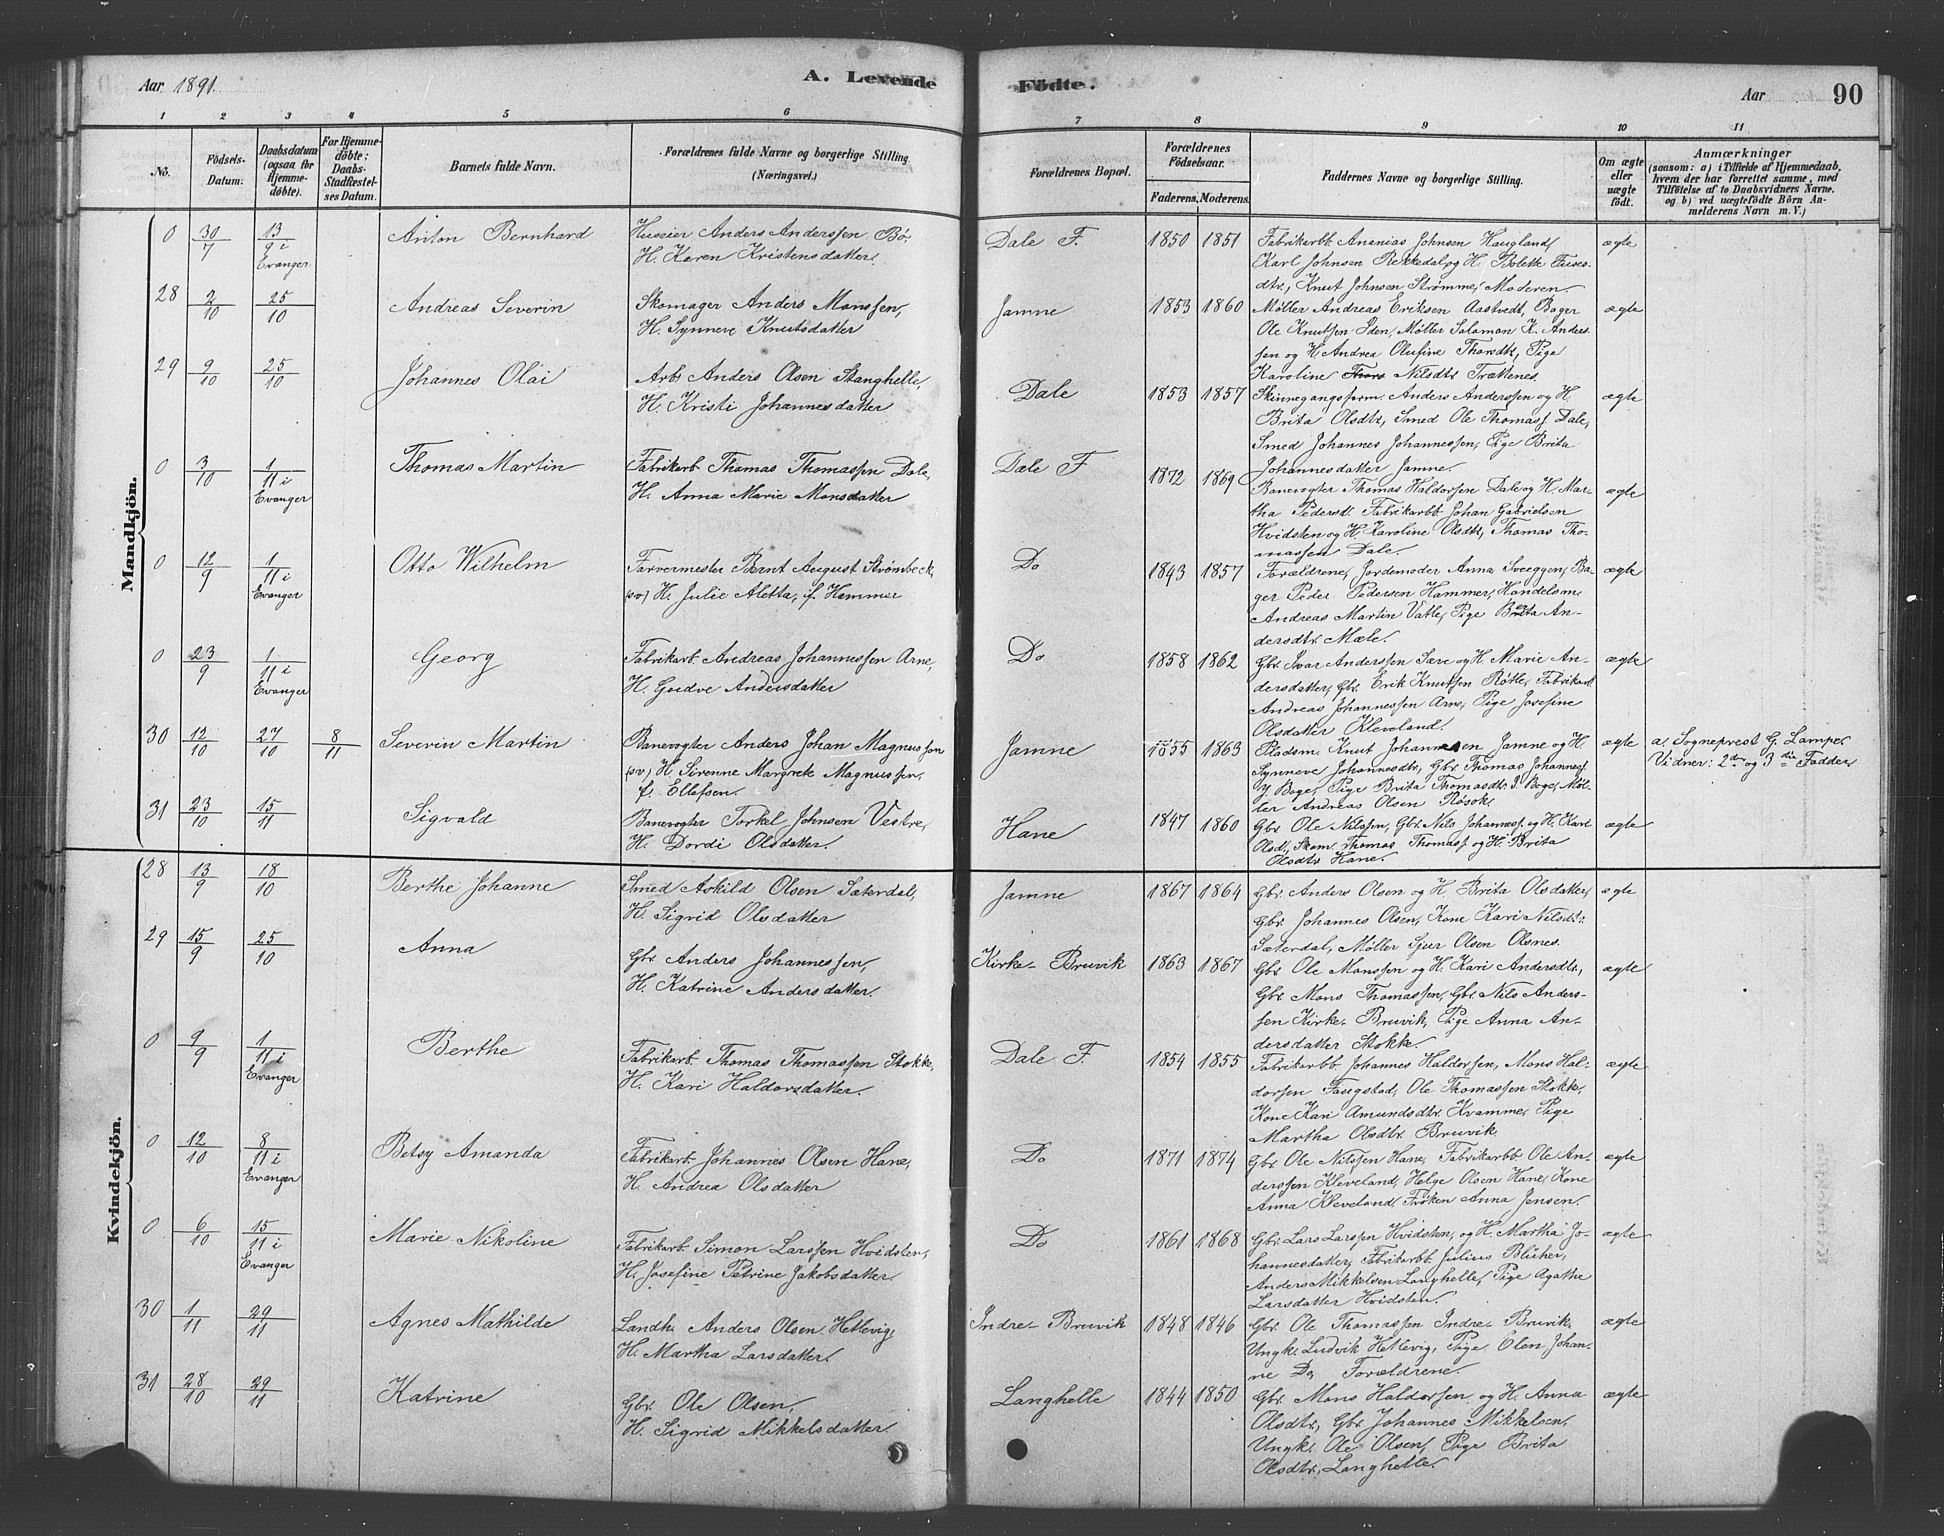 Aar 1891. A. Levende Födte. Aar 90
1 2 3 4 5 6 7 8 9 10 11
No. Födsels-Datum. Daabsdatum (ogsaa för Hjemmedöbte). For Hjemmedöbte; Daabs-Stadfæstelses Datum. Barnets fulde Navn. Forældrenes fulde Navne og borgerlige Stilling. (Næringsvei.) Forældrenes Bopæl. Forældrenes Födselsaar. Faderens. Moderens. Faddernes Navne og borgerlige Stilling. Om ægte eller uægte födt. Anmærkninger (saasom: a) i Tilfælde af Hjemmedaab, hvem der har forrettet samme, med Tilföielse af to Daabsvidners Navne. og b) ved uægtefödte Börn Anmelderens Navn m. V.)
Mandkjön.
0 30/7 13/9 i Evanger Anton Bernhard Huseier Anders Anderssen Bø. Dale F. 1850 1851 Fabrikarbb Ananias Johnsen Haugland, ægte
H. Karen Kristensdatter. Karl Johnsen Rekkedal og H. Bolette Tuses-
dtr., Knut Johnsen Strømme, Moderen.
28 2/10 25/10 Andreas Severin Skomager Anders Monssen, Jamne 1853 1860 Møller Andreas Eriksen Aastvedt, Bager ægte
H. Synneve Knutsdatter Ole Knutssen Iden, Møller Salamon K. Anders-
sen og H. Andrea Olufine Thorsdtr, Pige
Karoline Thors Nilsdtr Trættenes.
29 9/10 25/10 Johannes Olai Arb. Anders Olsen Stanghelle, Dale 1853 1857 Skinnegangsform. Anders Anderssen og H. ægte
H. Kristi Johannesdatter Brita Olsdtr, Smed Ole Thomass Dale,
Smed Johannes Johannessen, Pige Brita
Johannesdatter Jamne.
0 3/10 1/11 i Evanger Thomas Martin Fabrikarb. Thomas Thomassen Dale, Dale F 1872 1869 Banevogter Thomas Haldorsen Dale og H. Mar- ægte
H. Anna Marie Monsdatter tha Pedersdtr. Fabrikarbb Johan Gabrielsen
Hvidsten og H. Karoline Olsdtr, Thomas Tho-
massen Dale.
0 12/9 1/11 i Evanger Otto Wilhelm Farvermester Bernt August Strømbeck, Do 1843 1857 Forældrene, Jordemoder Anna Sveeggen, Ba- ægte
(sv) H. Julie Aletta, f. Hammer ger Peder Pedersen Hammer, Handelsm.
Andreas Martin Vatle, Pige Brita An-
dersdtr. Mæle.
0 23/9 1/11 i Evanger Georg Fabrikarb. Andreas Johannessen Arne, Do 1858 1862 Gbr. Ivar Anderssen Sæve og H. Marie An- ægte
H. Gudve Andersdatter dersdatter, Gbr. Erik Knutsen Røtle, Fabrikarb
Andreas Johannessen Arne, Pige Josefine
Olsdatter Kleveland.
30 12/10 27/10 8/11 Severin Martin Banevogter Anders Johan Magnussen Jamne 1855 1863 Pladsm. Knut Johannesen Jamne og H. ægte a. Sogneprest G. Lampe,
(sv) H. Sirenne Margrete Magnussen, Synneve Johannesdtr, Gbr. Thomas Johanness Vidner: 2den og 3die Fadder,
f. Ellefsen. Y. Boge, Pige Brita Thomasdtr. I. Boge, Møl-
ler Andreas Olsen Røsok.
31 23/10 15/11 Sigvald Banevogter Torkel Johnsen Vestre, Hane 1847 1860 Gbr. Ole Nilssen, Gbr. Nils Johanness. og H. Kari ægte
H. Dordi Olsdatter. Olsdt., Skom. Thomas Thomass. og H. Brita
Olsdtr Hane.
Kvindekjön.
28 13/9 18/10 Berthe Johanne Smed Askild Olsen Sæterdal, Jamne 1867 1864 Gbr. Anders Olsen og H Brita Olsdatter, ægte
H. Sigrid Olsdatter Gbr. Johannes Olsen, Kone Kari Nilsdt.
Sæterdal, Møller Sjur Olsen Olsnes.
29 15/9 25/10 Anna Gbr. Anders Johannessen, Kirke-Bruvik 1863 1867 Gbr. Ole Monssen og H. Kari Andersdtr, ægte
H. Katrine Andersdatter. Gbr. Mons Thomassen, Gbr. Nils Anders-
sen Kirke-Bruvik, Pige Anna An-
dersdatter Stokke.
0 9/9 1/11 i Evanger Berthe Fabrikarb. Thomas Thomassen Stokke, Dale F 1854 1855 Fabrikarbb Johannes Haldorsen, Mons Hal- ægte
H. Kari Haldorsdatter. dorsen Faugstad, Ole Thomassen Stokke,
Kone Kari Amundsdtr. Kvamme, Pige
Martha Olsdtr. Bruvik
0 12/10 8/11 i Evanger Betsy Amanda Fabrikarb. Johannes Olsen Hane, Do 1871 1874 Gbr. Ole Nilssen Hane, Fabrikarbb Ole An- ægte
H. Andrea Olsdatter derssen Kleveland, Helge Olsen Hane, Kone
Anna Kleveland, Frøken Anna Jensen.
0 6/10 15/11 i Evanger Marie Nikoline Fabrikarb. Simon Larssen Hvidsten, Do 1861 1868 Gbr. Lars Larssen Hvidsten, og H. Martha Jo- ægte
H. Josefine Petrine Jakobsdatter. hannesdatter, Fabrikarbb Julius Blüher,
Anders Mikkelsen Langhelle, Pige Agathe
Larsdatter Hvidsten.
30 1/11 29/11 Agnes Mathilde Landh. Anders Olsen Hetlevig, Indre-Bruvik 1848 1846 Gbr. Ole Thomassen Indre-Bruvik, ægte
H. Martha Larsdatter. Ungk. Ludvik Hetlevig, Pige Olen Johan-
ne Do, Forældrene.
31 28/10 29/11 Katrine Gbr. Ole Olsen, Langhelle 1844 1850 Gbr. Mons Haldorsen og H. Anna ægte
H. Sigrid Mikkelsdatter. Olsdtr, Gbr. Johannes Mikkelsen,
Ungk. Ole Olsen, Pige Brita
Olsdtr, Langhelle.